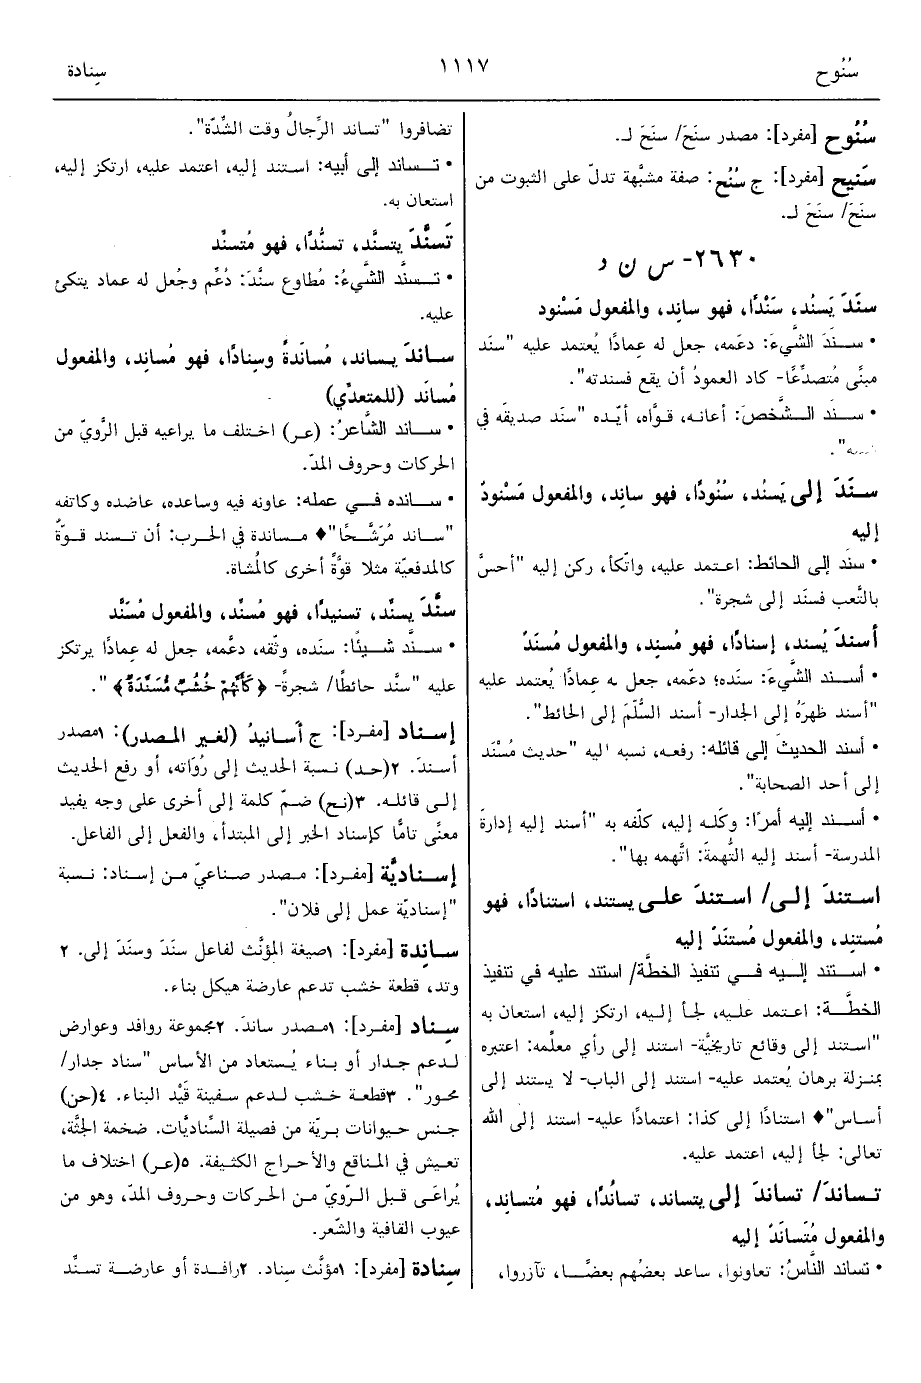 سُنُوح
١١١٧
سِنادة
سُنُوح [مفرد]: مصدر سنَحَ/ سنَحَ لـ.
سَنيح [مفرد]: ج سُنُح: صفة مشبَّهة تدلّ على الثبوت من
سنَحَ/ سنَحَ لـ.
٢٦٣٠- س ن د
سنَدَ يَسنُد، سَنْدًا، فهو سانِد، والمفعول مَسْنود
• سـنَدَ الشَّيءَ: دعَمه، جعل له عِمادًا يُعتمد عليه "سنَد
مبنًى مُتصدِّعًا- كاد العمودُ أن يقع فسندته".
• سـنَد الـشَّخصَ: أعانه، قـوَّاه، أيّـده "سنَد صديقَه في
سنَدَ إلى يَسنُد، سُنُودًا، فهو سانِد، والمفعول مَسْنودٌ
إليه
• سنَد إلى الحائط: اعـتمد عليه، واتّكأ، ركن إليه "أحسَّ
بالتَّعب فسنَد إلى شجرة".
أسندَ يُسند، إسنادًا، فهو مُسنِد، والمفعول مُسنَدٌ
• أسـند الشَّيءَ: سنَده؛ دعَمه، جعل له عِمادًا يُعتمد عليه
"أسند ظهرَهُ إلى الجدار- أسند السُّلّمَ إلى الحائط".
• أسند الحديثَ إلى قائله: رفعه، نسبه إليه "حديث مُسْنَد
إلى أحد الصحابة".
• أسـند إليه أمرًا: وكَلـه إليه، كلّفه به "أسند إليه إدارةَ
المدرسة- أسند إليه التُّهمةَ: اتَّهمه بها".
استندَ إلـى/ استندَ علـى يستند، استنادًا، فهو
مُستنِد، والمفعول مُستنَدٌ إليه
• اسـتند إلـيه فـي تنفيذ الخطَّة/ استند عليه في تنفيذ
الخطَّـة: اعتمد علـيه، لجأ إلـيه، ارتكز إليه، استعان به
"استند إلى وقائع تاريخيَّة- استند إلى رأي معلِّمه: اعتبره
بمنـزلة برهان يُعتمد عليه- استند إلى الباب- لا يستند إلى
أسـاس"♦ استنادًا إلى كذا: اعتمادًا عليه- استند إلى الله
تعالى: لجأ إليه، اعتمد عليه.
تـساندَ/ تساندَ إلى يتساند، تسانُدًا، فهو مُتساند،
والمفعول مُتَسانَدٌ إليه
• تساند النَّاسُ: تعاونوا، ساعد بعضُهم بعضًـا، تآزروا،
تضافروا "تساند الرِّجالُ وقت الشِّدّة".
• تـساند إلى أبيه: اسـتند إليه، اعتمد عليه، ارتكز إليه،
استعان به.
تَسنَّدَ يتسنَّد، تسنُّدًا، فهو مُتسنِّد
• تـسنَّد الشَّيءُ: مُطاوع سنَّدَ: دُعِّم وجُعل له عماد يتكئ
عليه.
سـاندَ يـساند، مُسانَدةً وسِنادًا، فهو مُساند، والمفعول
مُسانَد (للمتعدِّي)
• سـاند الشَّاعرُ: (عـر) اختلف ما يراعيه قبل الرَّويّ من
الحركات وحروف المدّ.
• سـانده فـي عمله: عاونه فيه وساعده، عاضده وكاتفه
"سـاند مُرَشَّـحًا"♦ مـساندة في الحرب: أن تـسند قـوّةٌ
كالمدفعيّة مثلا قوَّةً أخرى كالمُشاة.
سنَّدَ يسنِّد، تسنيدًا، فهو مُسنِّد، والمفعول مُسَنَّد
• سـنَّد شـيئًا: سنَده، وثّقه، دعَّمه، جعل له عِمادًا يرتكز
عليه "سنَّد حائطًا/ شجرةً- ﴿كَأَنَّهُمْ خُشُبٌ مُسَنَّدَةٌ﴾".
إسناد [مفـرد]: ج أسـانيدُ (لغير المـصدر): ١مصدر
أسـندَ. ٢(حـد) نسبة الحديث إلى رُوَاته، أو رفع الحديث
إلـى قائلـه. ٣(نـح) ضـمّ كلمة إلى أخرى على وجه يفيد
معنًى تامًّا كإسناد الخبر إلى المبتدأ، والفعل إلى الفاعل.
إسـناديَّة [مفـرد]: مـصدر صـناعيّ مـن إسـناد: نـسبة
"إسناديّة عمل إلى فلان".
سـانِدة [مفرد]: ١صيغة المؤنَّث لفاعل سنَدَ وسنَدَ إلى. ٢
وتد، قطعة خشب تدعم عارضة هيكل بناء.
سِـناد [مفـرد]: ١مـصدر ساندَ. ٢مجموعة روافد وعوارض
لـدعم جـدار أو بـناء يُـستعاد مـن الأساس "سناد جدار/
محور". ٣قطعة خـشب لـدعم سـفينة قَيْد البناء. ٤(حن)
جنس حيوانات بـريّة من فصيلة السِّناديَّات. ضخمة الجثَّة،
تعيش في المناقع والأحراج الكثيفة. ٥(عـر) اختلاف ما
يُراعَى قبـل الرَّويّ مـن الحركات وحروف المدّ، وهو من
عيوب القافية والشّعر.
سِـنادة [مفرد]: ١مؤنَّث سِناد. ٢رافـدة أو عارضـة تسنِّد